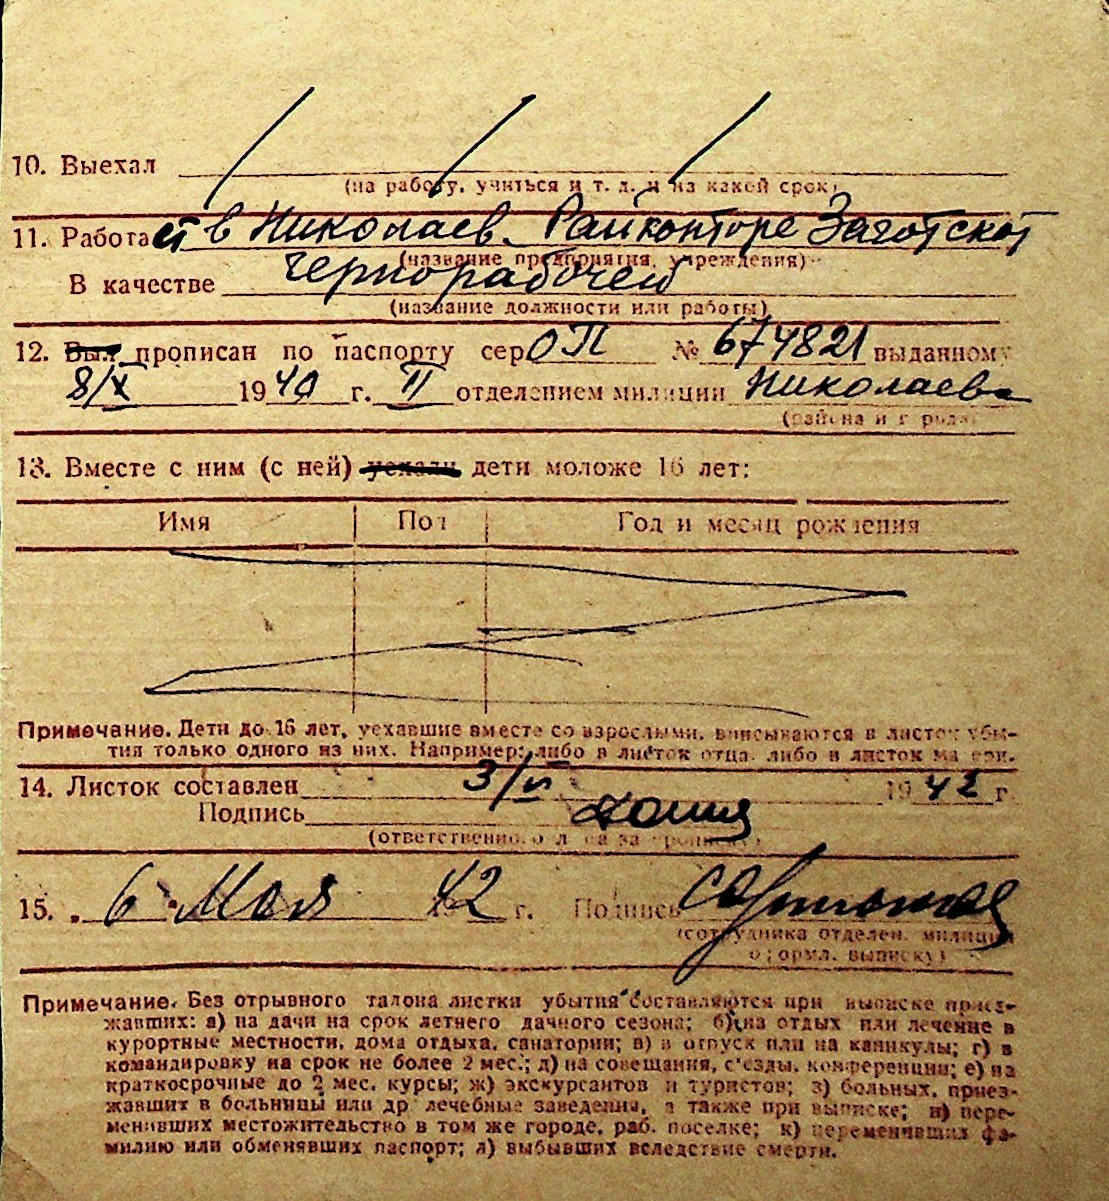 10. Выехал
(на работу, учиться и т. д. и на какой срок)
11. Работает в Николаев. Райконторе Заготскот
(название предприятия, учреждения)
В качестве чернорабочей
(название должности или работы)
12. Был прописан по паспорту сер ОП № 674821 выданному
8/X 1940 г. II отделением милиции Николаева
(района и города)
13. Вместе с ним (с ней) уехали дети моложе 16 лет:
Имя Пол Год и месяц рождения
Примечание. Дети до 16 лет, уехавшие вместе со взрослыми, вписываются в листок убы-
тия только одного из них. Например: либо в листок отца, либо в листок матери.
14. Листок составлен 3/ 1942 г.
Подпись
(ответственного лица за прописку)
15. 6 Мая 42 г. Подпись
(сотрудника отделен. милиции
оформл. выписку)
Примечание. Без отрывного талона листки убытия составляются при выписке приез-
жавших: а) на дачи на срок летнего дачного сезона; б) на отдых или лечение в
курортные местности, дома отдыха, санатории; в) в отпуск или на каникулы; г) в
командировку на срок не более 2 мес.; д) на совещания, с'езды, конференции; е) на
краткосрочные до 2 мес. курсы; ж) экскурсантов и туристов; з) больных, приез-
жавших в больницы или др лечебные заведения, а также при выписке; и) пере-
менивших местожительство в том же городе, раб. поселке; к) переменивших фа-
милию или обменявших паспорт; л) выбывших вследствие смерти.